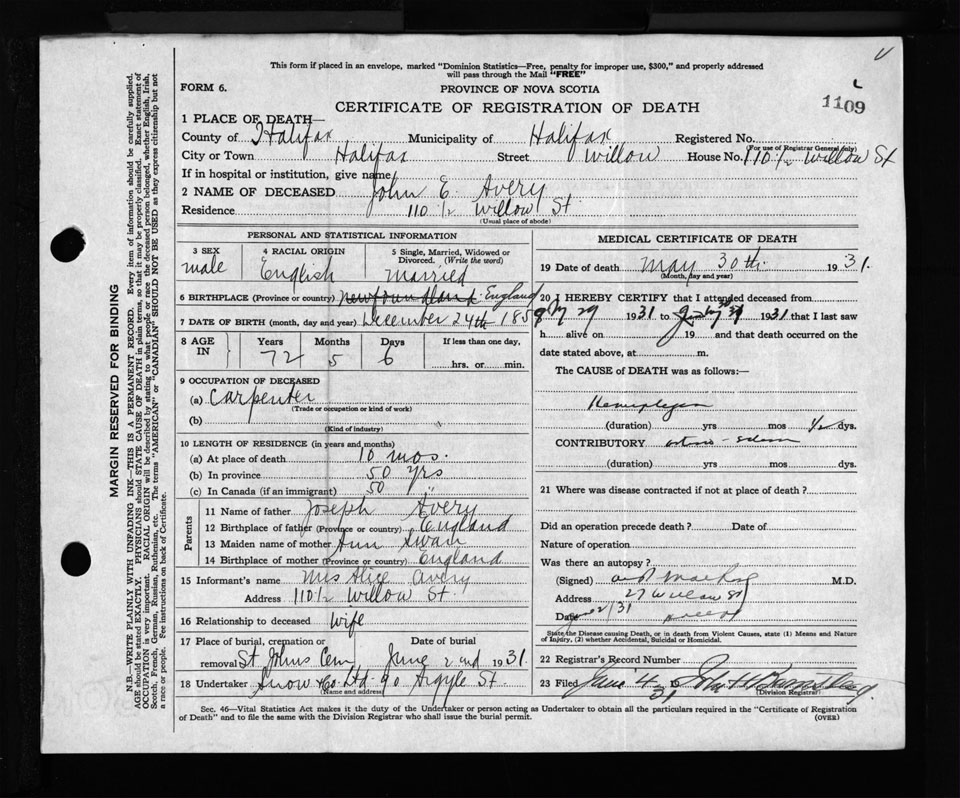 This form if placed in an envelope, marked "Dominion Statistics—Free, penalty for improper use, $300," and properly addressed
will pass through the Mail "FREE"
FORM 6.
PROVINCE OF NOVA SCOTIA
CERTIFICATE OF REGISTRATION OF DEATH
1109
1 PLACE OF DEATH—
County of Halifax Municipality of Halifax. Registered No.
(For use of Registrar General only)
City or Town Halifax Street Willow House No. 110 1/2 Willow St
If in hospital or institution, give name
2 NAME OF DECEASED John E. Avery
Residence 110 1/2 Willow St.
(Usual place of abode)
PERSONAL AND STATISTICAL INFORMATION
3 SEX male
4 RACIAL ORIGIN English
5 Single, Married, Widowed or Divorced. (Write the word) Married
6 BIRTHPLACE (Province or country) Newfoundland. England
7 DATE OF BIRTH (month, day and year) December 24th 1858
8 AGE IN Years 72 Months 5 Days 6 If less than one day, hrs. or min.
9 OCCUPATION OF DECEASED
(a) Carpenter
(Trade or occupation or kind of work)
(b)
(Kind of industry)
10 LENGTH OF RESIDENCE (in years and months)
(a) At place of death 10 mos.
(b) In province 50 yrs
(c) In Canada (if an immigrant) 50 "
Parents
11 Name of father Joseph Avery
12 Birthplace of father (Province or country) England
13 Maiden name of mother Ann Swain
14 Birthplace of mother (Province or country) England
15 Informant's name Mrs Alice Avery
Address 110 1/2 Willow St.
16 Relationship to deceased wife
17 Place of burial, cremation or removal St. Johns Cem Date of burial June 2nd 1931.
18 Undertaker Snow & Co Ltd 90 Argyle St
(Name and address)
MEDICAL CERTIFICATE OF DEATH
19 Date of death May 30th. 1931.
(Month, day and year)
20 I HEREBY CERTIFY that I attended deceased from
29 1931 to 1931 that I last saw
h alive on 19 and that death occurred on the
date stated above, at m.
The CAUSE of DEATH was as follows:—
Hemiplegia
(duration) yrs mos dys.
CONTRIBUTORY
(duration) yrs mos dys.
21 Where was disease contracted if not at place of death?
Did an operation precede death? Date of
Nature of operation
Was there an autopsy?
(Signed) M.D.
Address 27 Willow St
Date June 2/31
State the Disease causing Death, or in death from Violent Causes, state (1) Means and Nature
of Injury, (2) whether Accidental, Suicidal or Homicidal.
22 Registrar's Record Number
23 Filed June 4 31 John H
(Division Registrar)
Sec. 46—Vital Statistics Act makes it the duty of the Undertaker or person acting as Undertaker to obtain all the particulars required in the "Certificate of Registration
of Death" and to file the same with the Division Registrar who shall issue the burial permit.
(OVER)
MARGIN RESERVED FOR BINDING
N.B.—WRITE PLAINLY WITH UNFADING INK—THIS IS A PERMANENT RECORD. Every item of information should be carefully supplied.
AGE should be stated EXACTLY. PHYSICIANS should STATE CAUSE OF DEATH in plain terms, so that it may be properly classified. Exact statement of
OCCUPATION is very important. RACIAL ORIGIN will be described by stating to what people or race the deceased person belonged, whether English, Irish,
Scotch, French, German, Russian, Ruthenian, etc. The terms "AMERICAN" or "CANADIAN" SHOULD NOT BE USED as they express citizenship but not
a race or people. See instructions on back of Certificate.